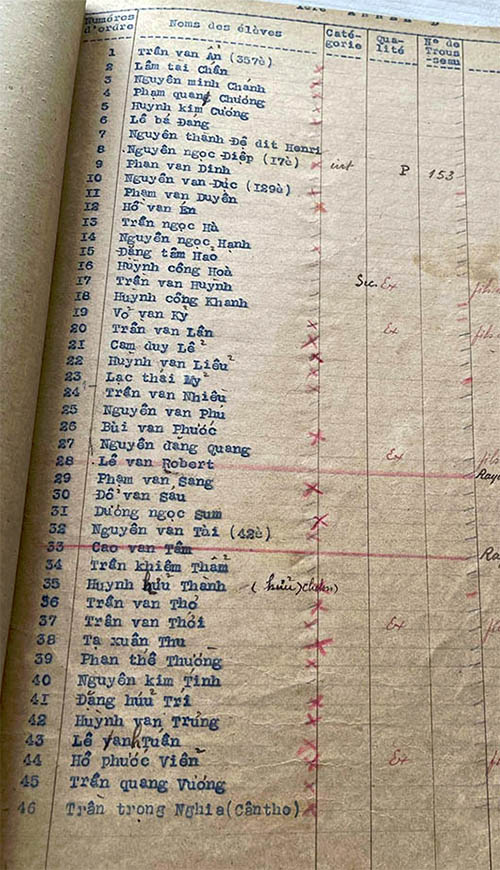 ANNEE
Numéros d'ordre Noms des élèves Catégorie Qualité Nº de Trousseau
1 Trần van Ẩn (357è)
2 Lâm tai Chấn
3 Nguyễn minh Chánh
4 Phạm quang Chương
5 Huỳnh kim Cương
6 Lê bá Đáng
7 Nguyễn thành Đệ dit Henri
8 Nguyễn ngọc Điệp (17è) int P 153
9 Phan van Dinh
10 Nguyễn van Đúc (129è)
11 Phạm van Duyên
12 Hồ van Én
13 Trần ngọc Hà
14 Nguyễn ngọc Hạnh
15 Đặng tâm Hao
16 Huỳnh công Hoà
17 Trần van Huỳnh Suc. Ex fils
18 Huỳnh công Khanh
19 Võ van Kỳ
20 Trần van Lân Ex fils
21 Cam duy Lễ
22 Huỳnh van Liêu
23 Lạc thái Mỹ
24 Trần van Nhiêu
25 Nguyễn van Phú
26 Bùi van Phước
27 Nguyễn đăng Quang Ex fils
28 Lê van Robert Rayé
29 Phạm van Sang
30 Đổ van Sáu
31 Dương ngọc Sum
32 Nguyễn van Tài (42è)
33 Cao van Tâm Ra
34 Trần khiêm Thẩm
35 Huỳnh hửu Thành (hửu)
36 Trần van Thọ
37 Trần van Thới Ex
38 Tạ xuân Thu
39 Phan thế Thường
40 Nguyễn kim Tính
41 Đặng hửu Trí
42 Huỳnh van Trừng
43 Lê vanh Tuấn
44 Hồ phước Viên Ex
45 Trần quang Vương
46 Trần trọng Nghia (Cântho)